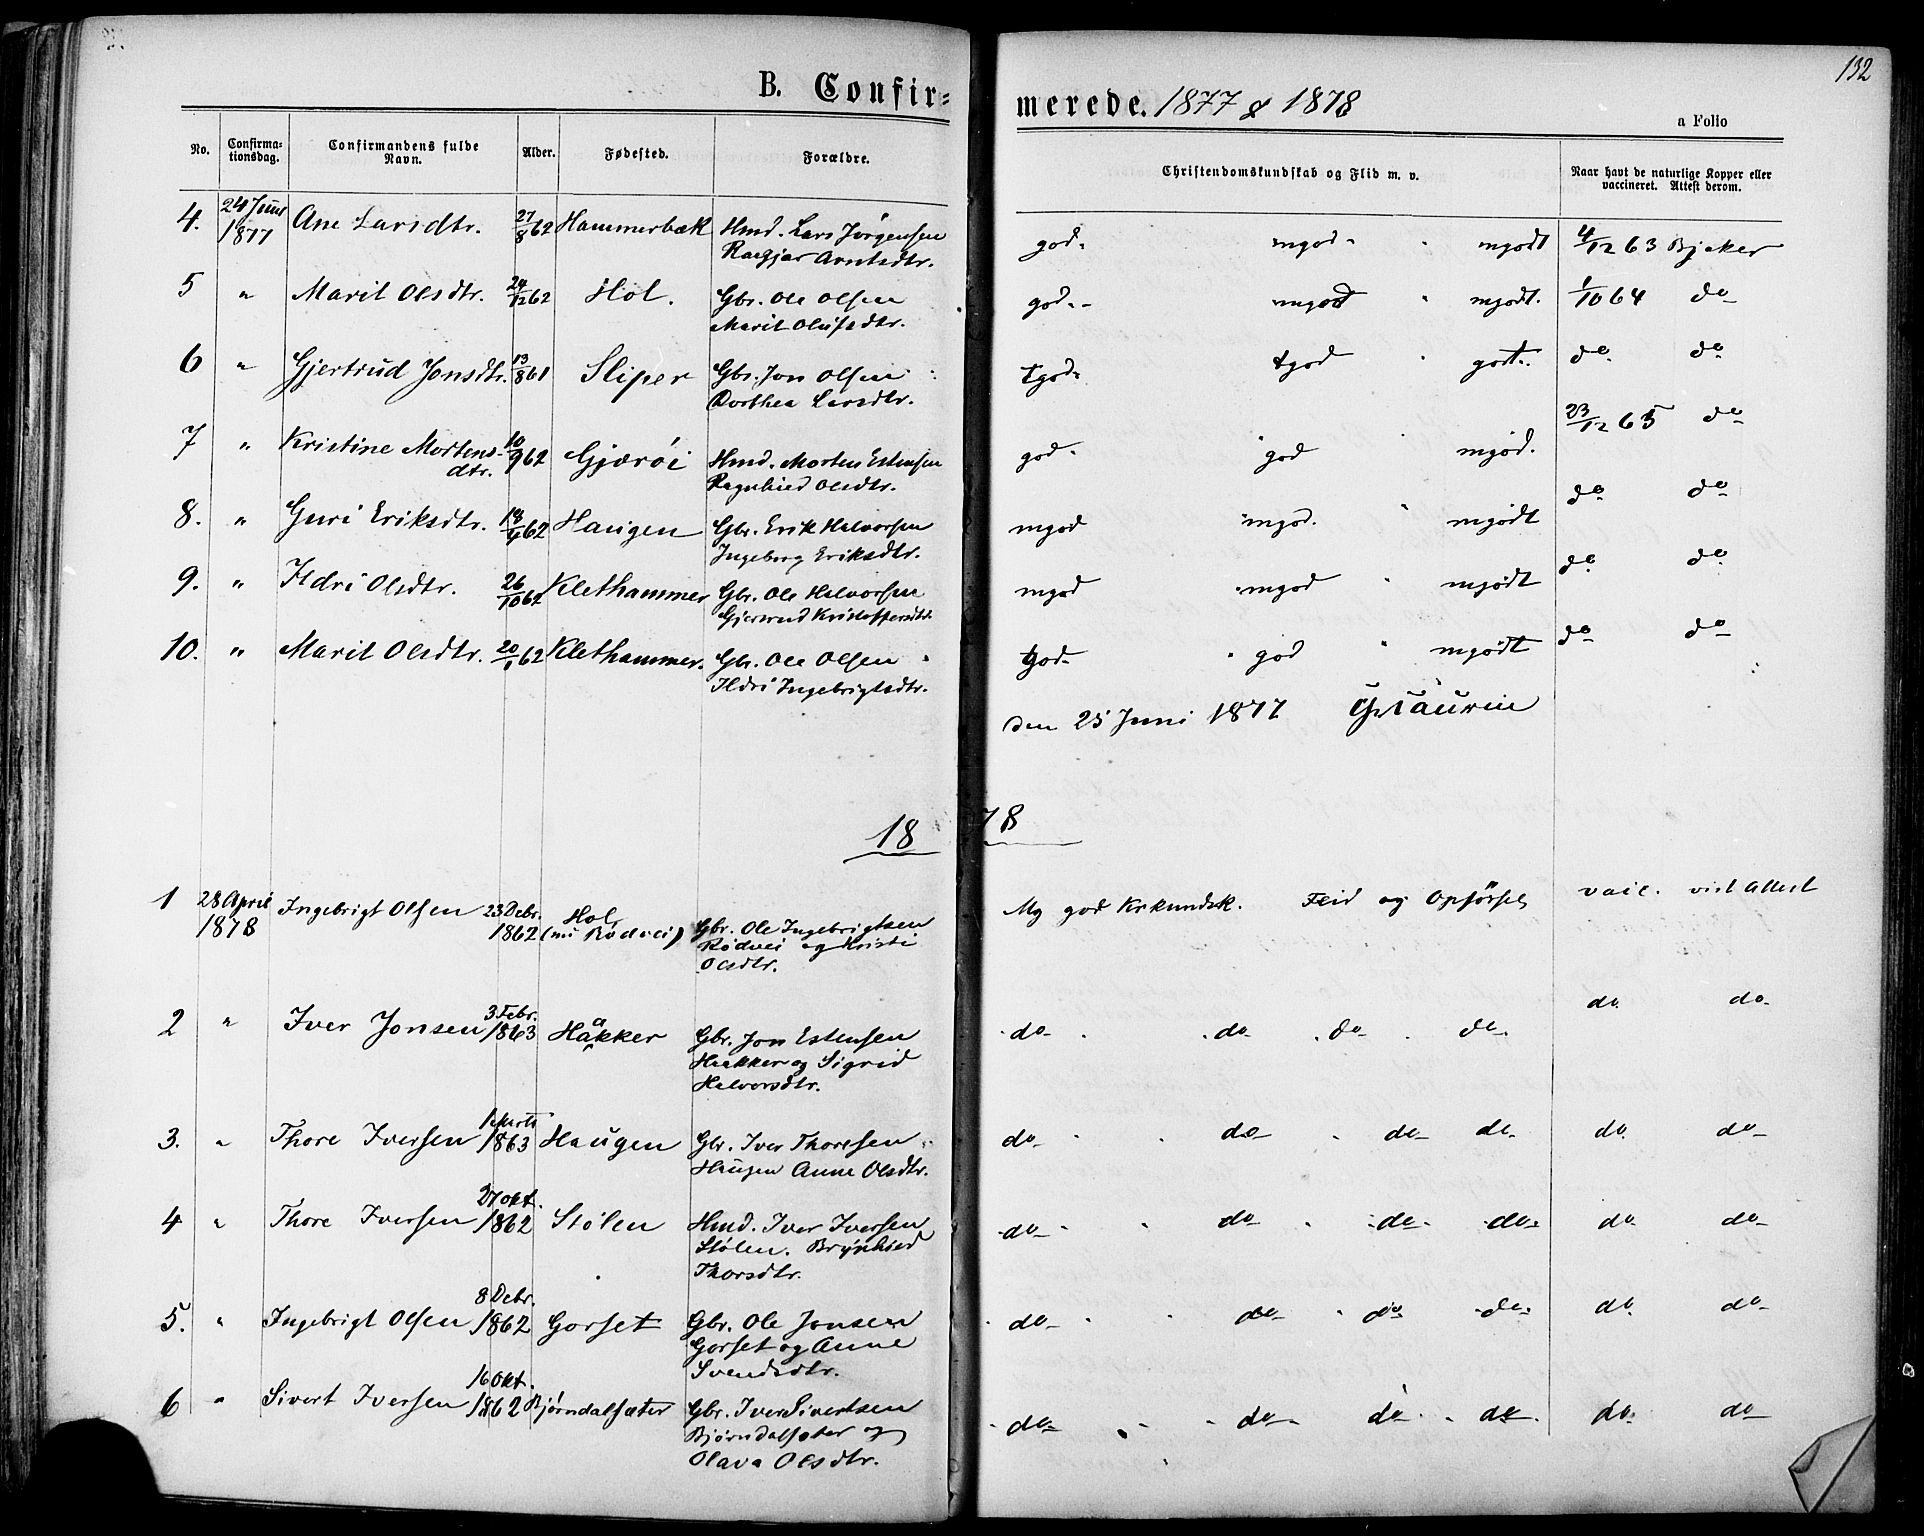 132
B. Confir= merede. 1877 & 1878
a Folio
No. Confirma-tionsdag. Confirmandens fulde Navn. Alder. Fødested. Forældre. Christendomskundskab og Flid m. v. Naar havt de naturlige Kopper eller vaccineret. Attest derom.
4. 24 Juni 1877 Ane Larsdtr. 27/8 62 Hammerbæk Hmd. Lars Jørgensen god. mgod. mgodt 4/12 63 Bjaker
Arntsdtr.
5 " Marit Olsdtr. 29/12 62 Hol. Gbr. Ole Olsen god. mgod mgodt. 1/10 64 do
Marit Olufsdtr.
6 " Gjertrud Jonsdtr. 13/8 61 Sliper Gbr. Jon Olsen tgod. tgod godt. do do
Dorthea Larsdtr.
7 " Kristine Mortens- 10/9 62 Gjærøi Hmd. Morten Estensen god. god mgod. 23/12 65 do
dtr. Ragnhild Olsdtr.
8. " Guri Eriksdtr. 18/4 62 Haugen Gbr. Erik Halvorsen mgod mgod. mgodt do do
Ingeborg Eriksdtr.
9. " Ildri Olsdtr. 26/10 62 Klethammer Gbr. Ole Halvorsen mgod mgod mgodt do do
Gjertrud Kristoffersdtr.
10. " Marit Olsdtr. 20/1 62 Klethammer. Gbr. Ole Olsen tgod. god mgodt do do
Ildri Ingebrigtsdtr.
den 25 Juni 1877 G. Taurin
1878
1 28 April 1878 Ingebrigt Olsen 23 Debr. 1862 Hol (nu Rødvei) Gbr. Ole Ingebrigtsen Mg god Krkundsk. Flid og Opførsel vacc. vist Attest
Rødvei og Kristi
Olsdtr.
2 " Iver Jonsen 3 Febr. 1863 Håkker Gbr. Jon Estensen do do do do do do
Haakker og Sigrid
Halvorsdtr.
3. " Thore Iversen 1 Marts 1863 Haugen Gbr. Iver Thoresen do do do do do do
Haugen Anne Olsdtr.
4 " Thore Iversen 27 Okt. 1862 Stølen Hmd. Iver Iversen do do do do do do
Stølen. Brynhild
Thorsdtr.
5. " Ingebrigt Olsen 8 Debr. 1862 Gorset Gbr. Ole Jonsen do do do do do do
Gorset og Anne
Svendsdtr.
6 " Sivert Iversen 16 Okt. 1862 Bjørndalsæter Gbr. Iver Sivertsen do do do do do do
Bjørndalsæter og
Olava Olsdtr.